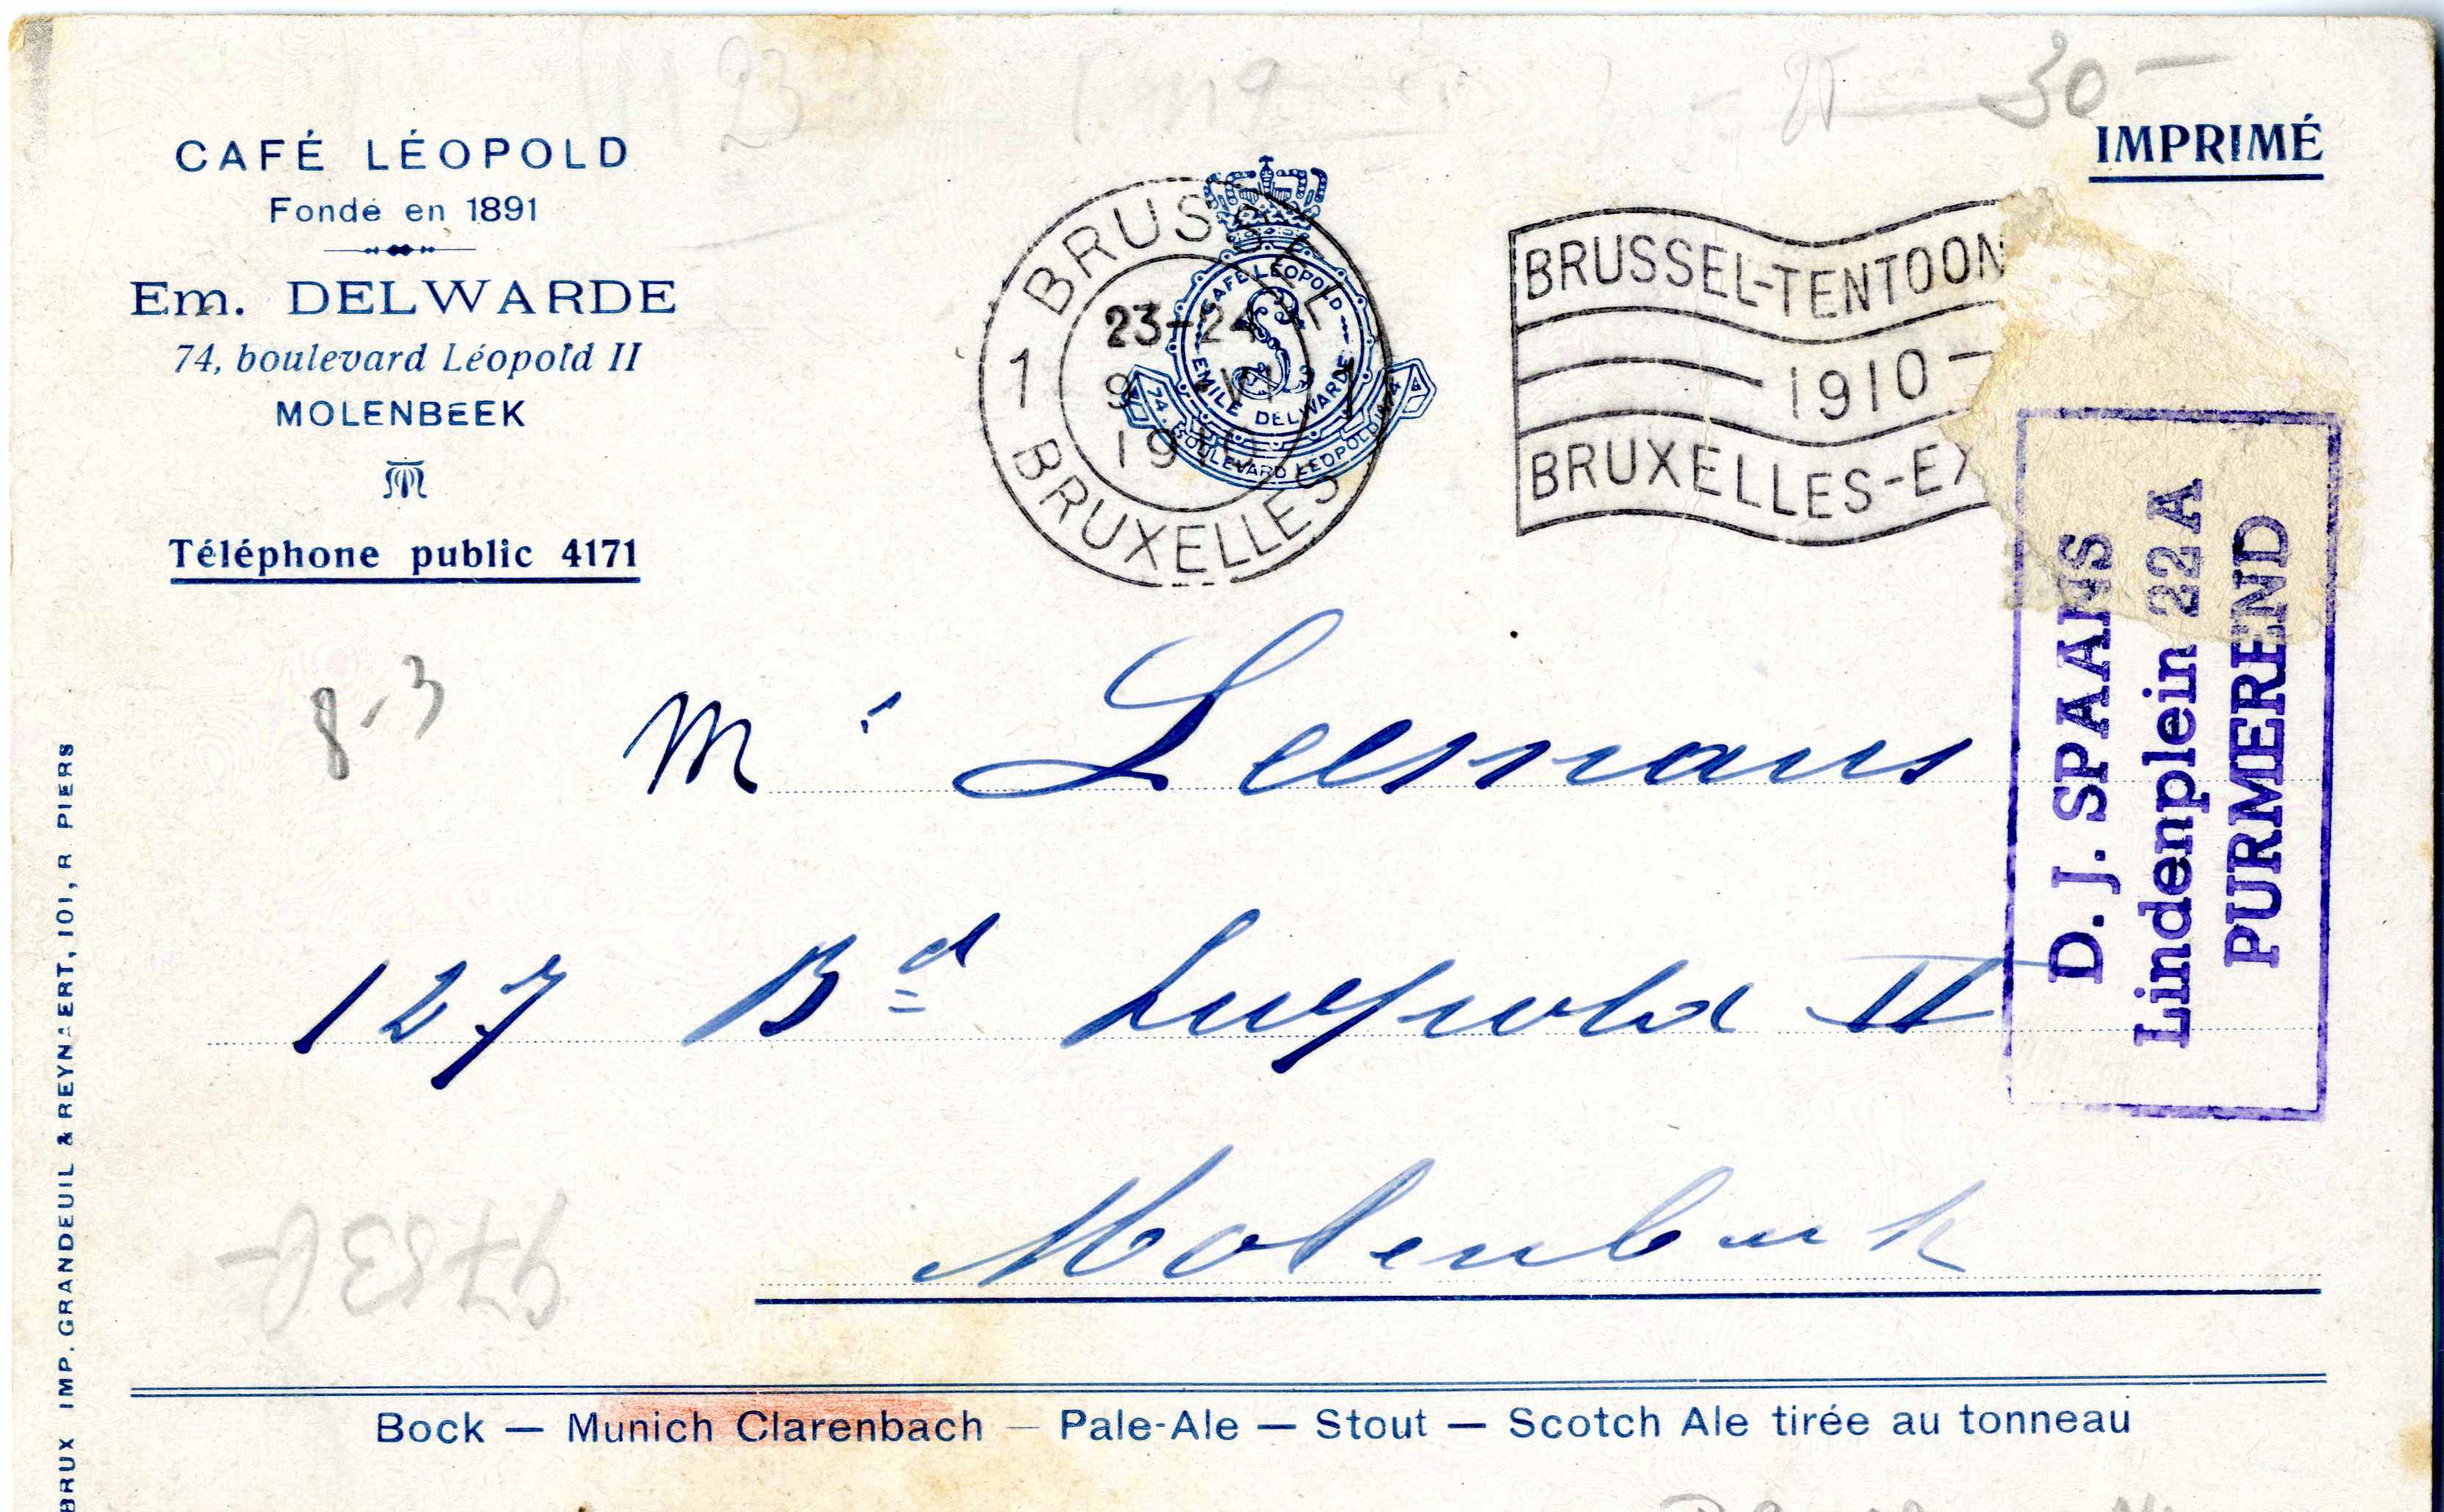 30 —
IMPRIMÉ
CAFÉ LÉOPOLD
Fondé en 1891
Em. DELWARDE
74, boulevard Léopold II
MOLENBEEK
Téléphone public 4171
1 BRUSSEL 1
23-24
9
1910
BRUXELLES
CAFÉ LÉOPOLD
EMILE DELWARDE
74, BOULEVARD LÉOPOLD II, 74
BRUSSEL-TENTOON
1910 —
BRUXELLES-EX
D. J. SPAANS
Lindenplein 22 A
PURMEREND
8-3
Mr Leemans
127 Bd Leopold II
Molenbeek
Bock — Munich Clarenbach — Pale-Ale — Stout — Scotch Ale tirée au tonneau
BRUX IMP. GRANDEUIL & REYNAERT, 101, R. PIERS